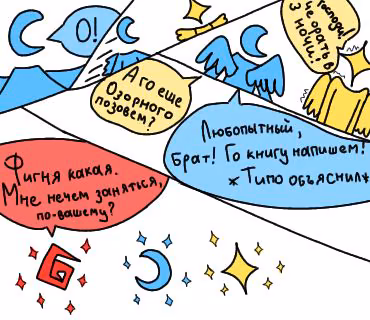 О!
Господи!
орать в
3 ночи!
А го еще
Озорного
позовем?
Любопытный,
брат! Го книгу напишем!
*Типо объяснил*
Фигня какая.
Мне нечем заняться,
по-вашему?